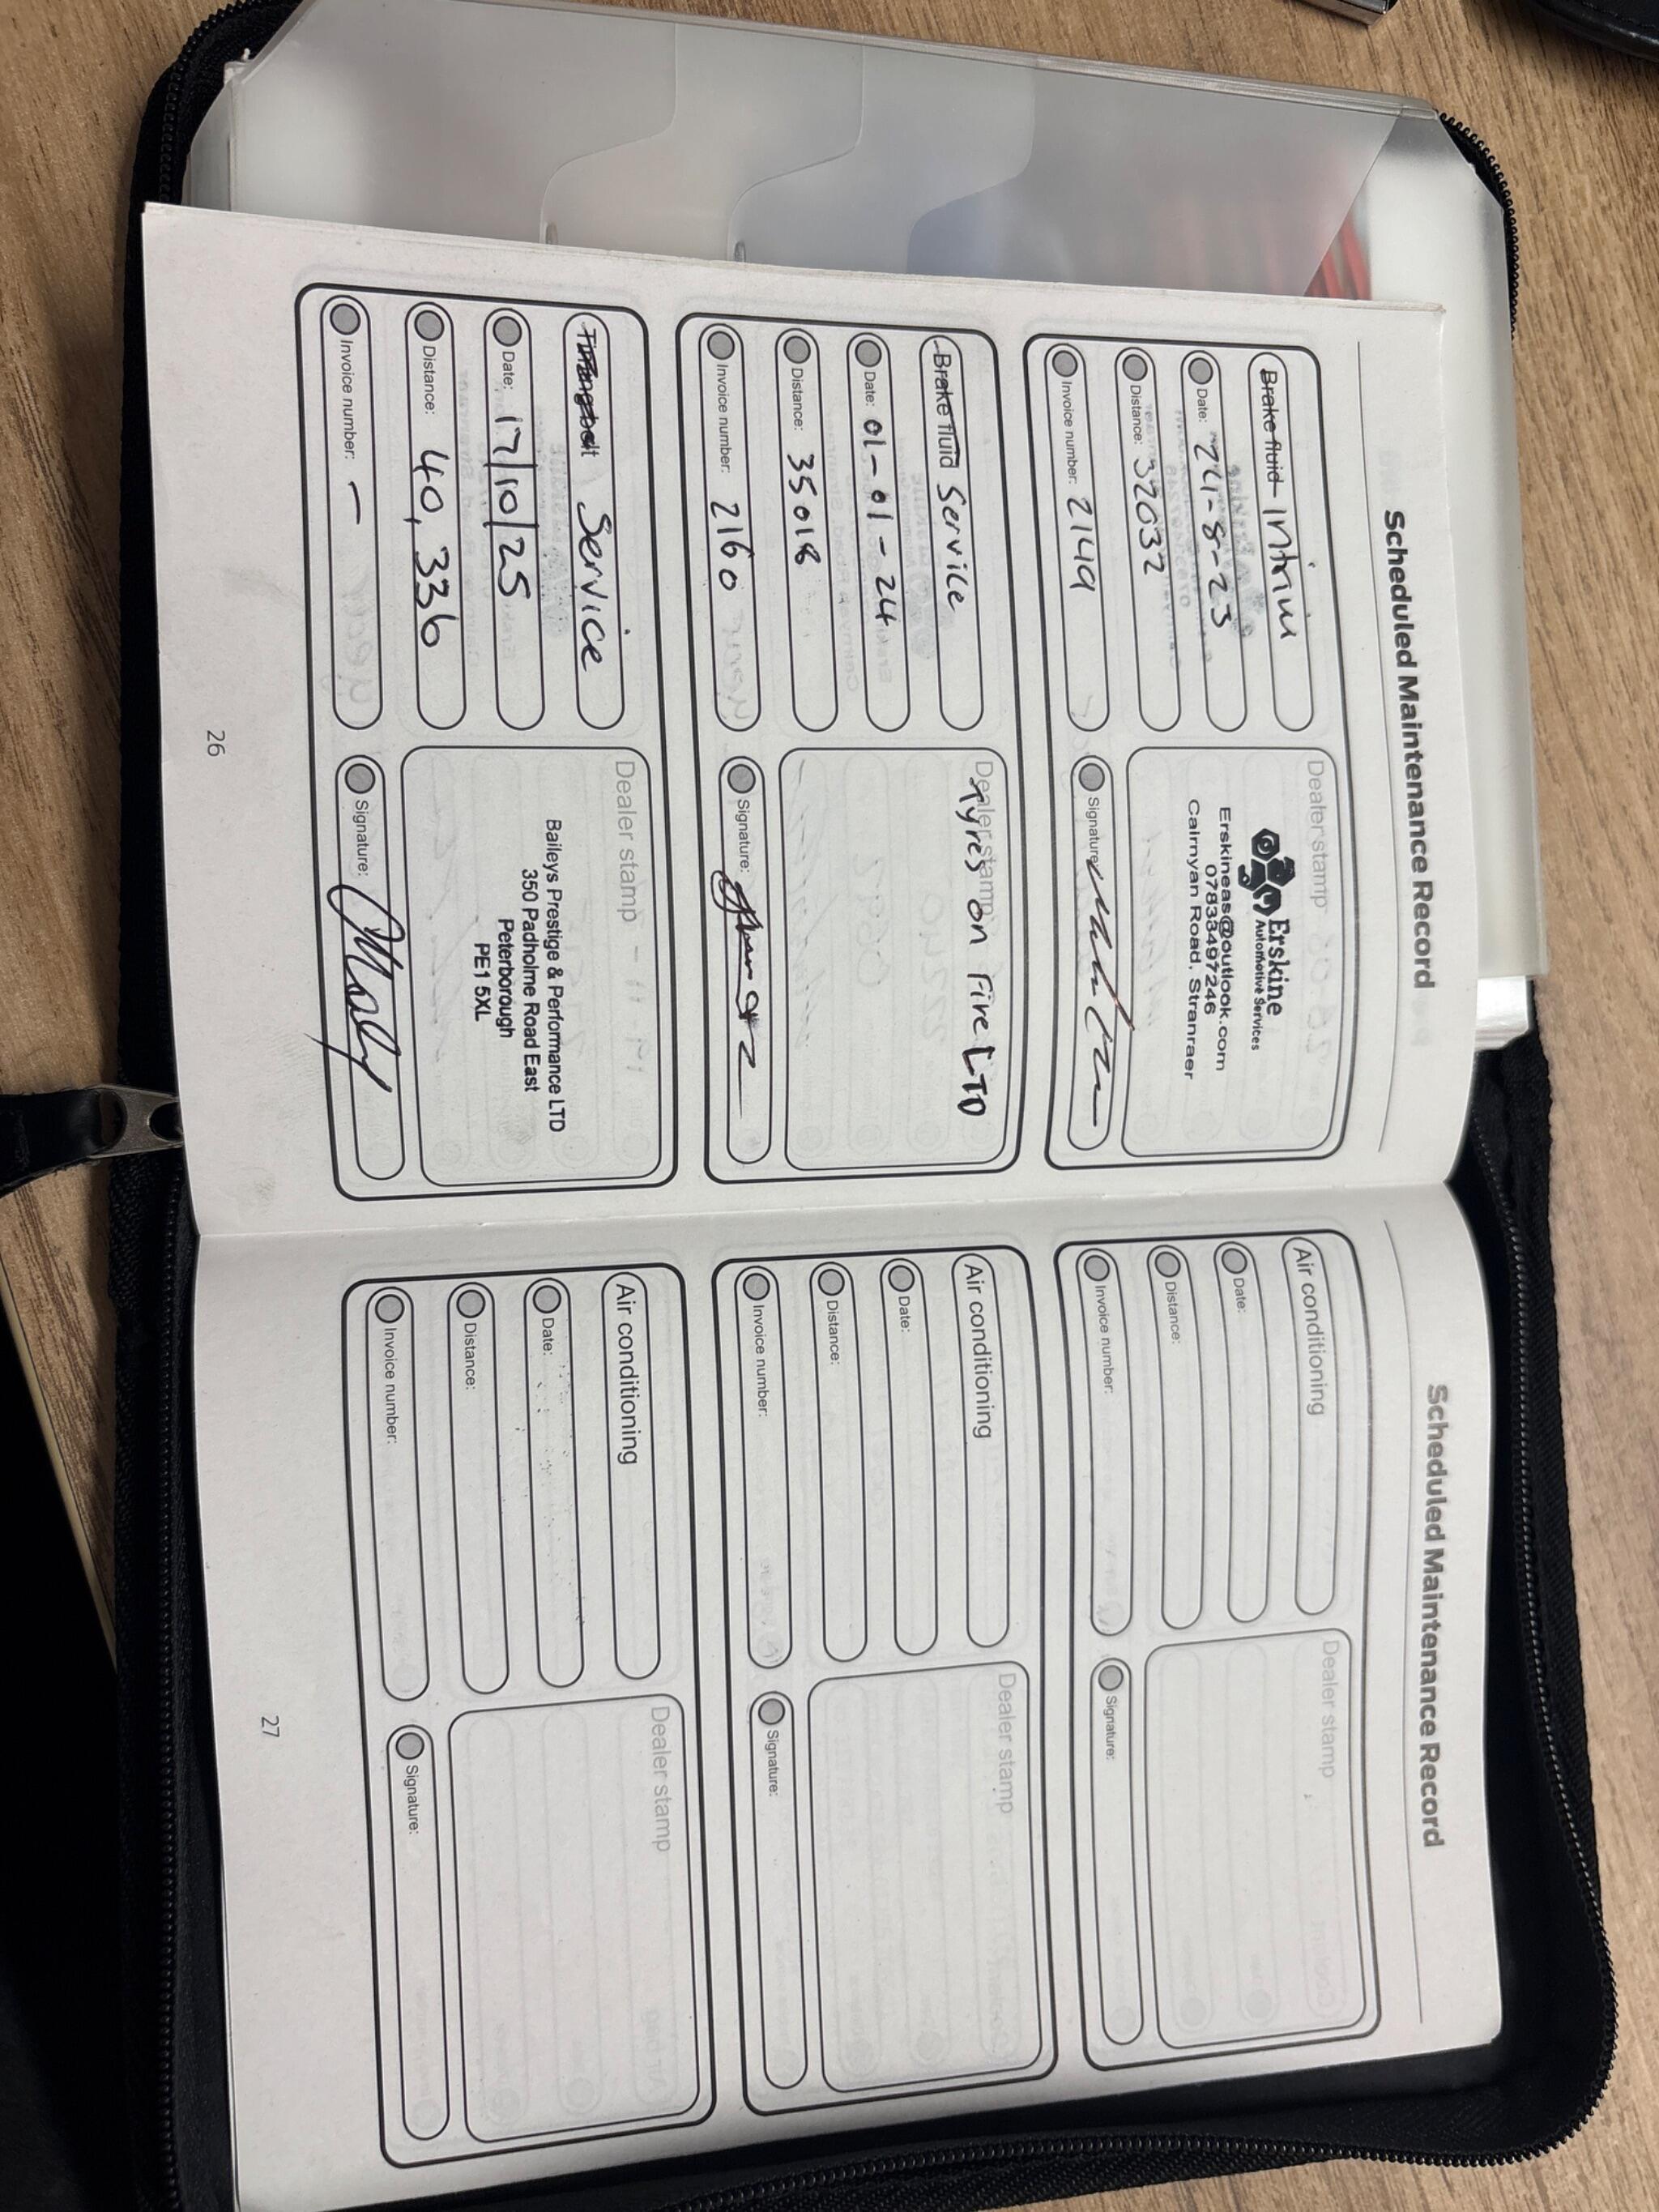 Scheduled Maintenance Record
Brake fluid intrim
Date: 24-8-23
Distance: 32032
Invoice number: 2149
Dealer stamp
Erskine
Automotive Services
Erskineas@outlook.com
07833497246
Cairnyan Road, Stranraer
Signature:
Brake fluid Service
Date: 01-01-24
Distance: 35018
Invoice number: 2160
Dealer stamp
Tyres on Fire LTD
Signature:
Service
Date: 17/10/25
Distance: 40,336
Invoice number: -
Dealer stamp
Baileys Prestige & Performance LTD
350 Padholme Road East
Peterborough
PE1 5XL
Signature:
26
Scheduled Maintenance Record
Air conditioning
Date:
Distance:
Invoice number:
Dealer stamp
Signature:
Air conditioning
Date:
Distance:
Invoice number:
Dealer stamp
Signature:
Air conditioning
Date:
Distance:
Invoice number:
Dealer stamp
Signature:
27